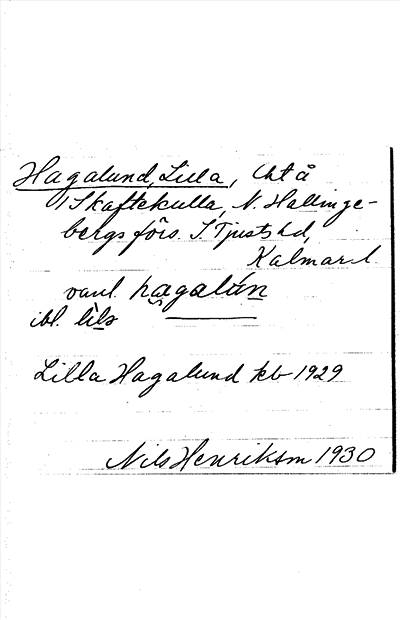 Hagalund, Lilla, Cht å
1 Skaftekulla, N. Hallinge-
bergs förs. S. Tjusts hd,
Kalmar l
vanl. hagalún
ibl. lìls
Lilla Hagalund kb 1929
Nils Henrikson 1930